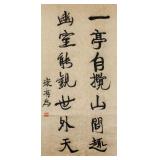 一亭自攬山間趣
幽室能觀世外天